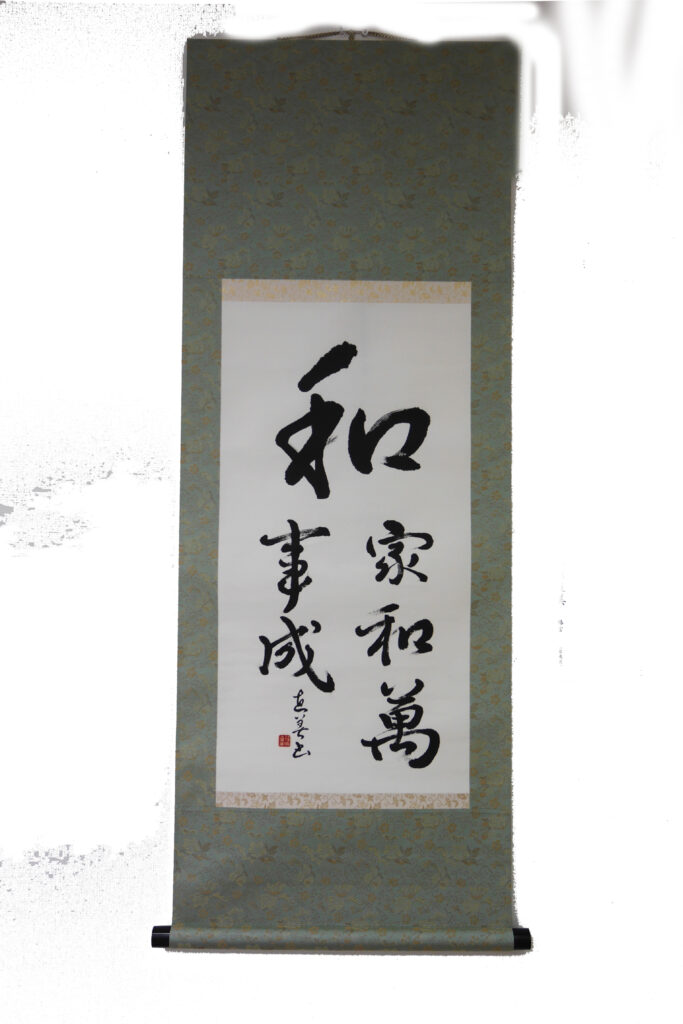 和
家和萬
事成